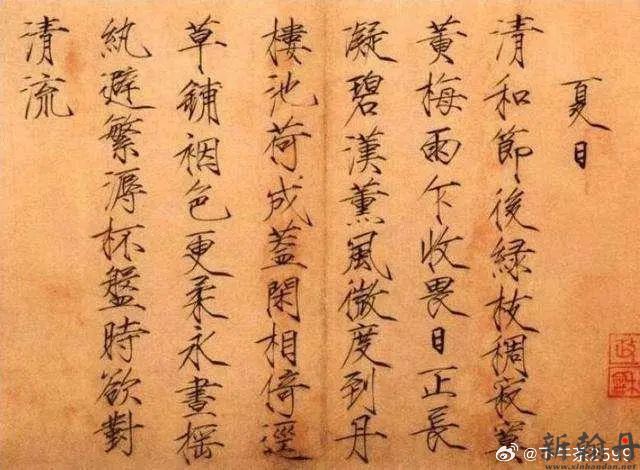 夏日
清和節後綠枝稠寂寞
黃梅雨乍收畏日正長
凝碧漢薰風微度到丹
樓池荷成蓋閑相倚逕
草鋪裀色更柔永晝搖
紈避繁溽杯盤時欲對
清流
新翰丹
www.xinhandan.net